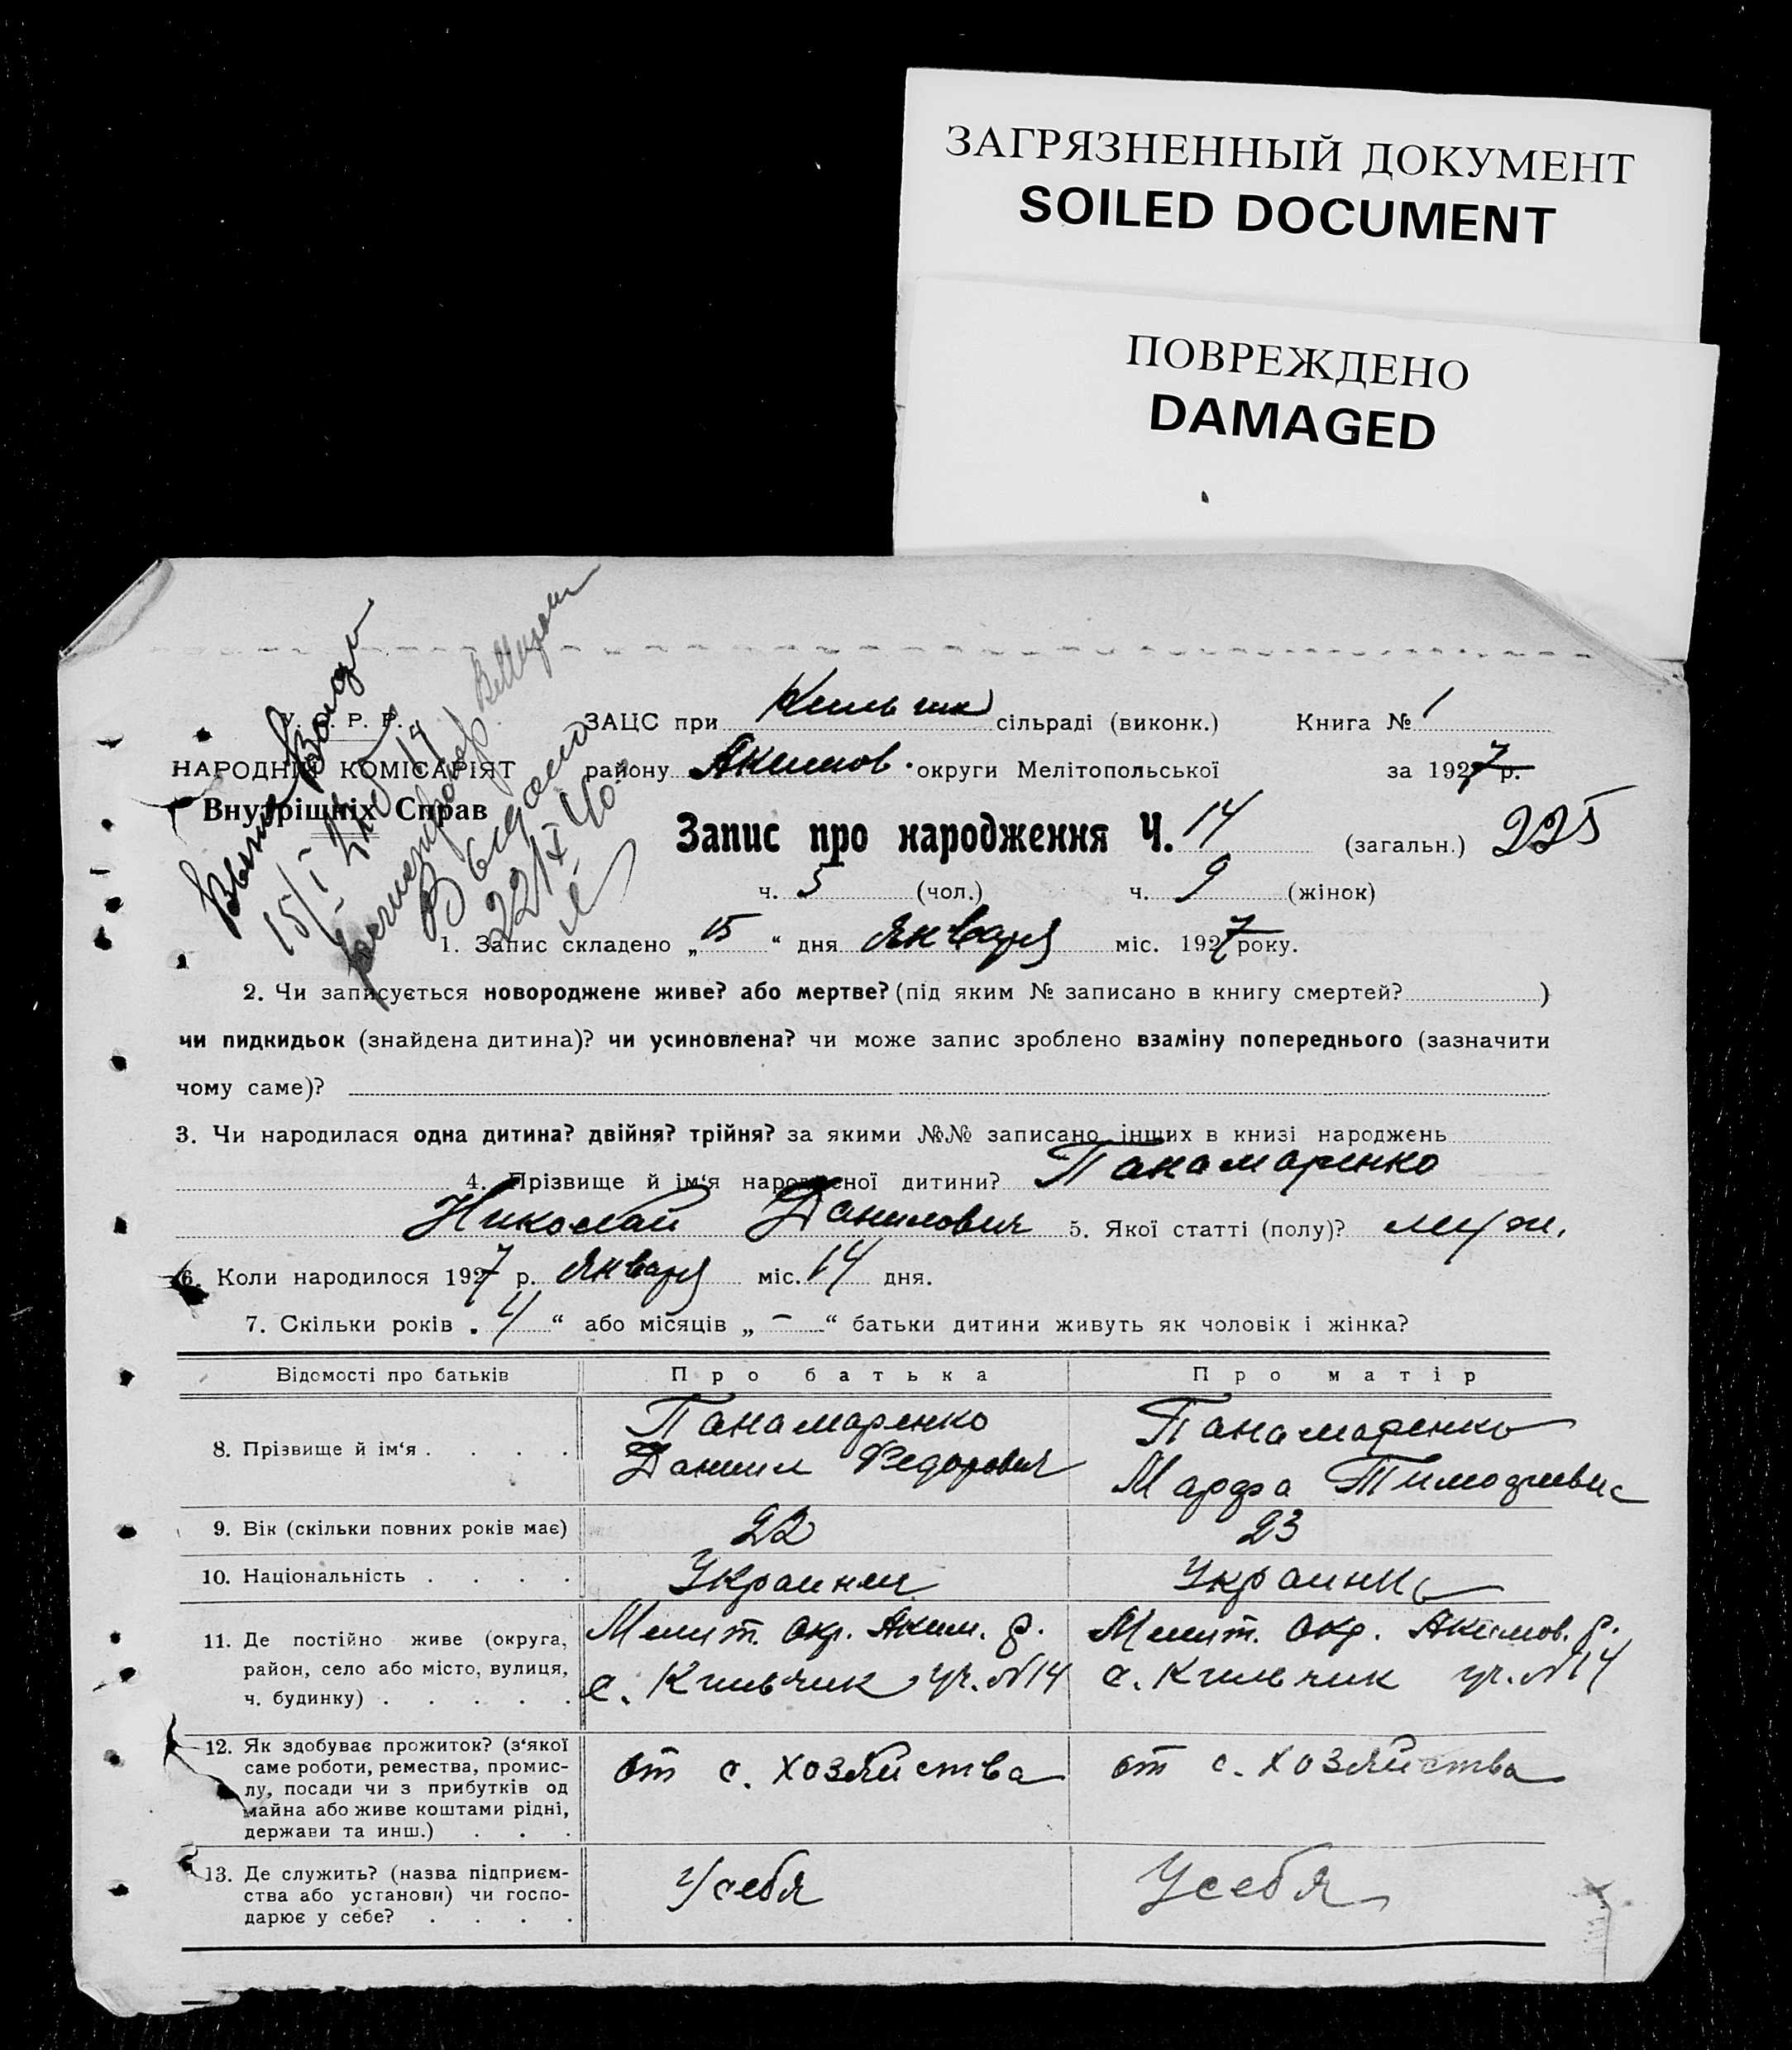 ЗАГРЯЗНЕННЫЙ ДОКУМЕНТ
SOILED DOCUMENT
ПОВРЕЖДЕНО
DAMAGED
У. Р. Р.
НАРОДНІЙ КОМІСАРІЯТ
Внутрішніх Справ
15/I
22/X 40
ЗАЦС при сільраді (виконк.) Книга № 1
району Акимов. округи Мелітопольської за 1927 р.
Запис про народження Ч. 14 (загальн.) 225
ч. 5 (чол.) ч. 9 (жінок)
1. Запис складено „15“ дня Января міс. 1927 року.
2. Чи записується новороджене живе? або мертве? (під яким № записано в книгу смертей? )
чи пидкидьок (знайдена дитина)? чи усиновлена? чи може запис зроблено взаміну попереднього (зазначити
чому саме)?
3. Чи народилася одна дитина? двійня? трійня? за якими №№ записано інших в книзі народжень
4. Прізвище й ім‘я народженої дитини? Панамаренко
Николай Данилович 5. Якої статті (полу)? муж.
6. Коли народилося 1927 р. Января міс. 14 дня.
7. Скільки років „4“ або місяців „–“ батьки дитини живуть як чоловік і жінка?
Відомості про батьків Про батька Про матір
8. Прізвище й ім‘я . . . . Панамаренко Даниил Федорович Панамаренко Марфа
9. Вік (скільки повних років має) 22 23
10. Національність . . . . Украинец Украинка
11. Де постійно живе (округа, Мелит. окр. Аким. р. Мелит. окр. Акимов. р.
район, село або місто, вулиця, с. Кильчик уч. №14 с. Кильчик уч. №14
ч. будинку) . . . . .
12. Як здобуває прожиток? (з‘якої
саме роботи, ремества, промис- от с. хозяйства от с. хозяйства
лу, посади чи з прибутків од
майна або живе коштами рідні,
держави та инш.) . . .
13. Де служить? (назва підприєм- У себя У себя
ства або установи) чи госпо-
дарює у себе? . . . .